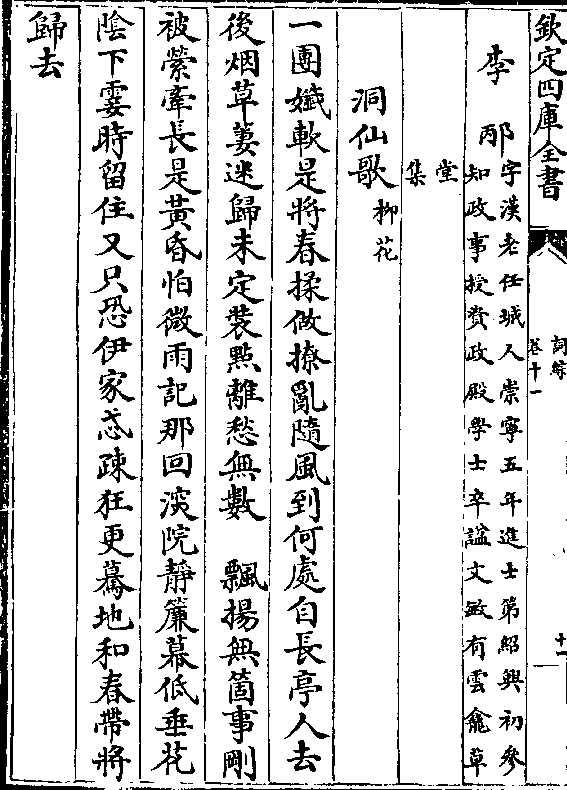 欽定四庫全書
詞綜
卷十一
十一
李邴字漢老任城人崇寧五年進士第紹興初參
知政事授資政殿學士卒諡文敏有雲龕草
堂
集
洞仙歌柳花
一團孅軟是將春揉做撩亂隨風到何處自長亭人去
後烟草萋迷歸未定裝點離愁無數　飄揚無箇事剛
被縈牽長是黃昏怕微雨記那回深院靜簾幕低垂花
陰下霎時留住又只恐伊家忒疎狂更驀地和春帶將
歸去